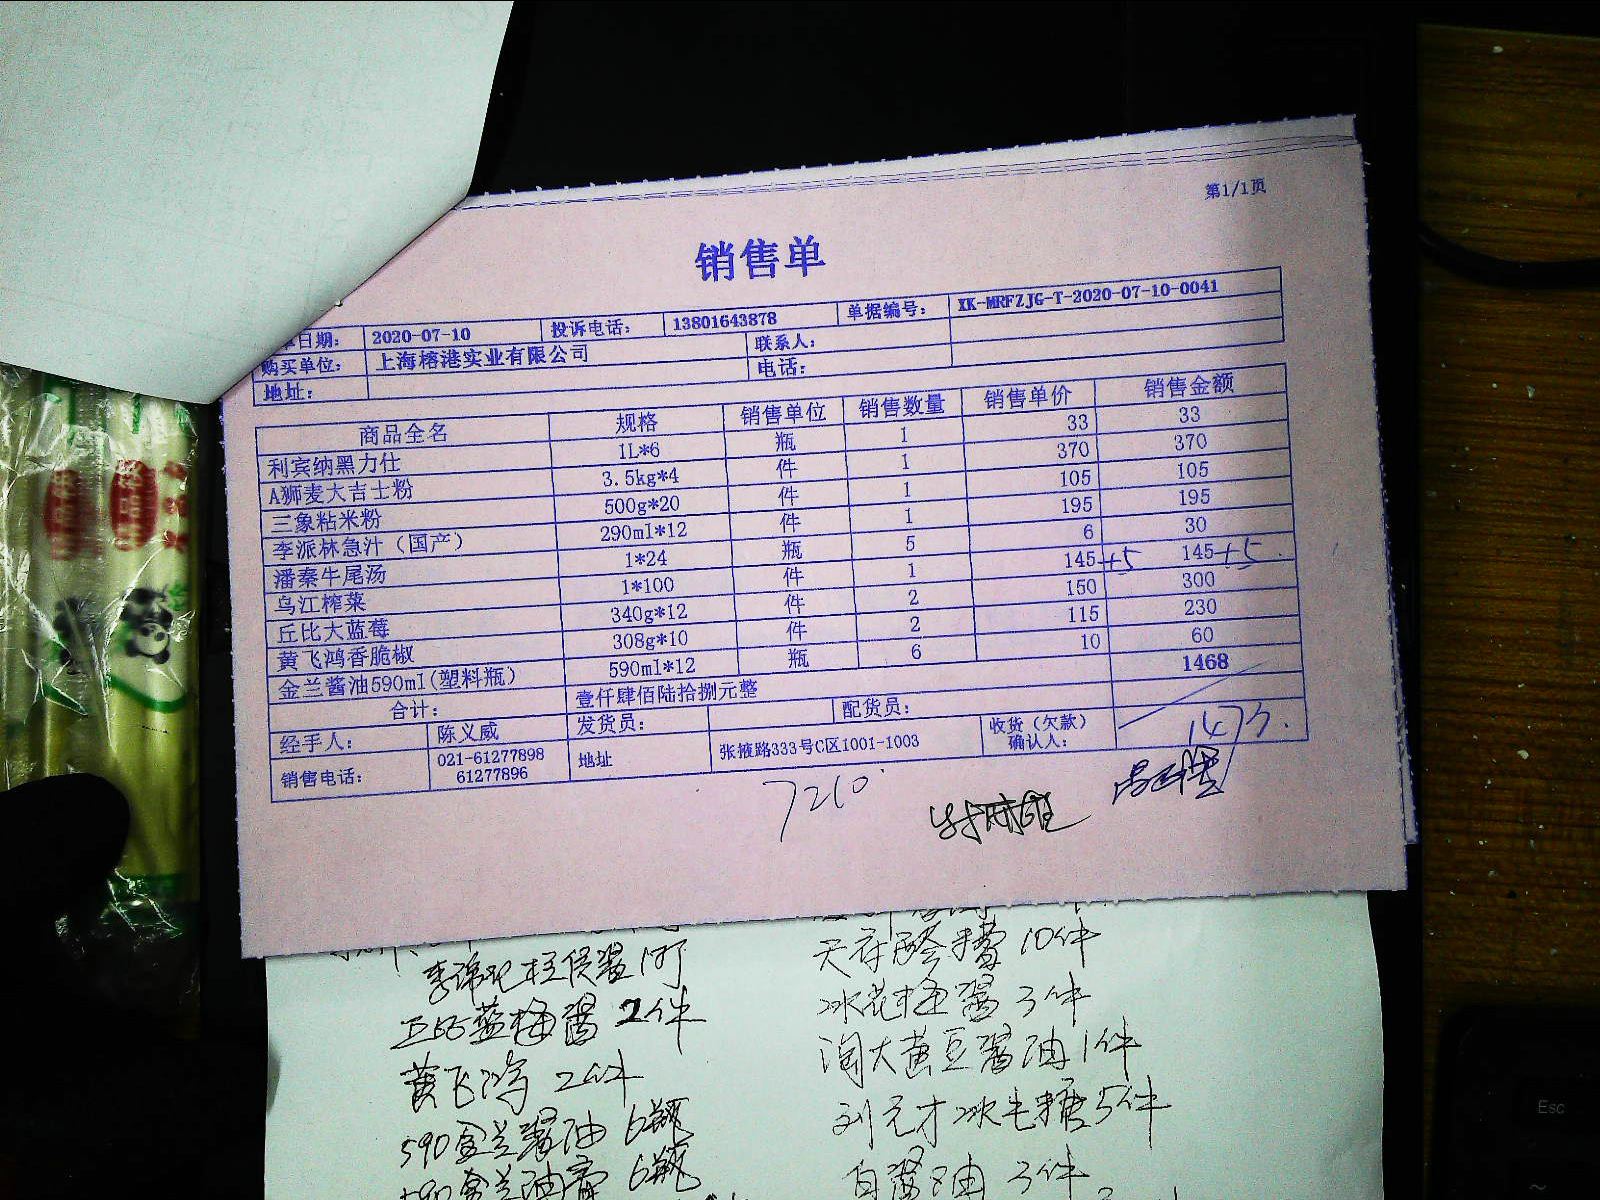 第1/1页
销售单
日期: 2020-07-10 投诉电话: 13801643878 单据编号: XK-MRFZJG-T-2020-07-10-0041
购买单位: 上海榕港实业有限公司 联系人:
地址: 电话:
商品全名 规格 销售单位 销售数量 销售单价 销售金额
利宾纳黑力仕 1L*6 瓶 1 33 33
A狮麦大吉士粉 3.5kg*4 件 1 370 370
三象粘米粉 500g*20 件 1 105 105
李派林急汁（国产） 290ml*12 件 1 195 195
潘泰牛尾汤 1*24 瓶 5 6 30
乌江榨菜 1*100 件 1 145+5 145+5
丘比大蓝莓 340g*12 件 2 150 300
黄飞鸿香脆椒 308g*10 件 2 115 230
金兰酱油590ml(塑料瓶) 590ml*12 瓶 6 10 60
合计: 壹仟肆佰陆拾捌元整 1468
经手人: 陈义威 发货员: 配货员:
销售电话: 021-61277898 61277896 地址 张掖路333号C区1001-1003 收货（欠款）确认人: 1473.
7210
天府醪糟 10件
2件
冰花梅酱 3件
黄飞鸿 2件
淘大黄豆酱油 1件
590金兰酱油 6瓶
5件
590金兰油膏 6瓶
白酱油 3件
Esc